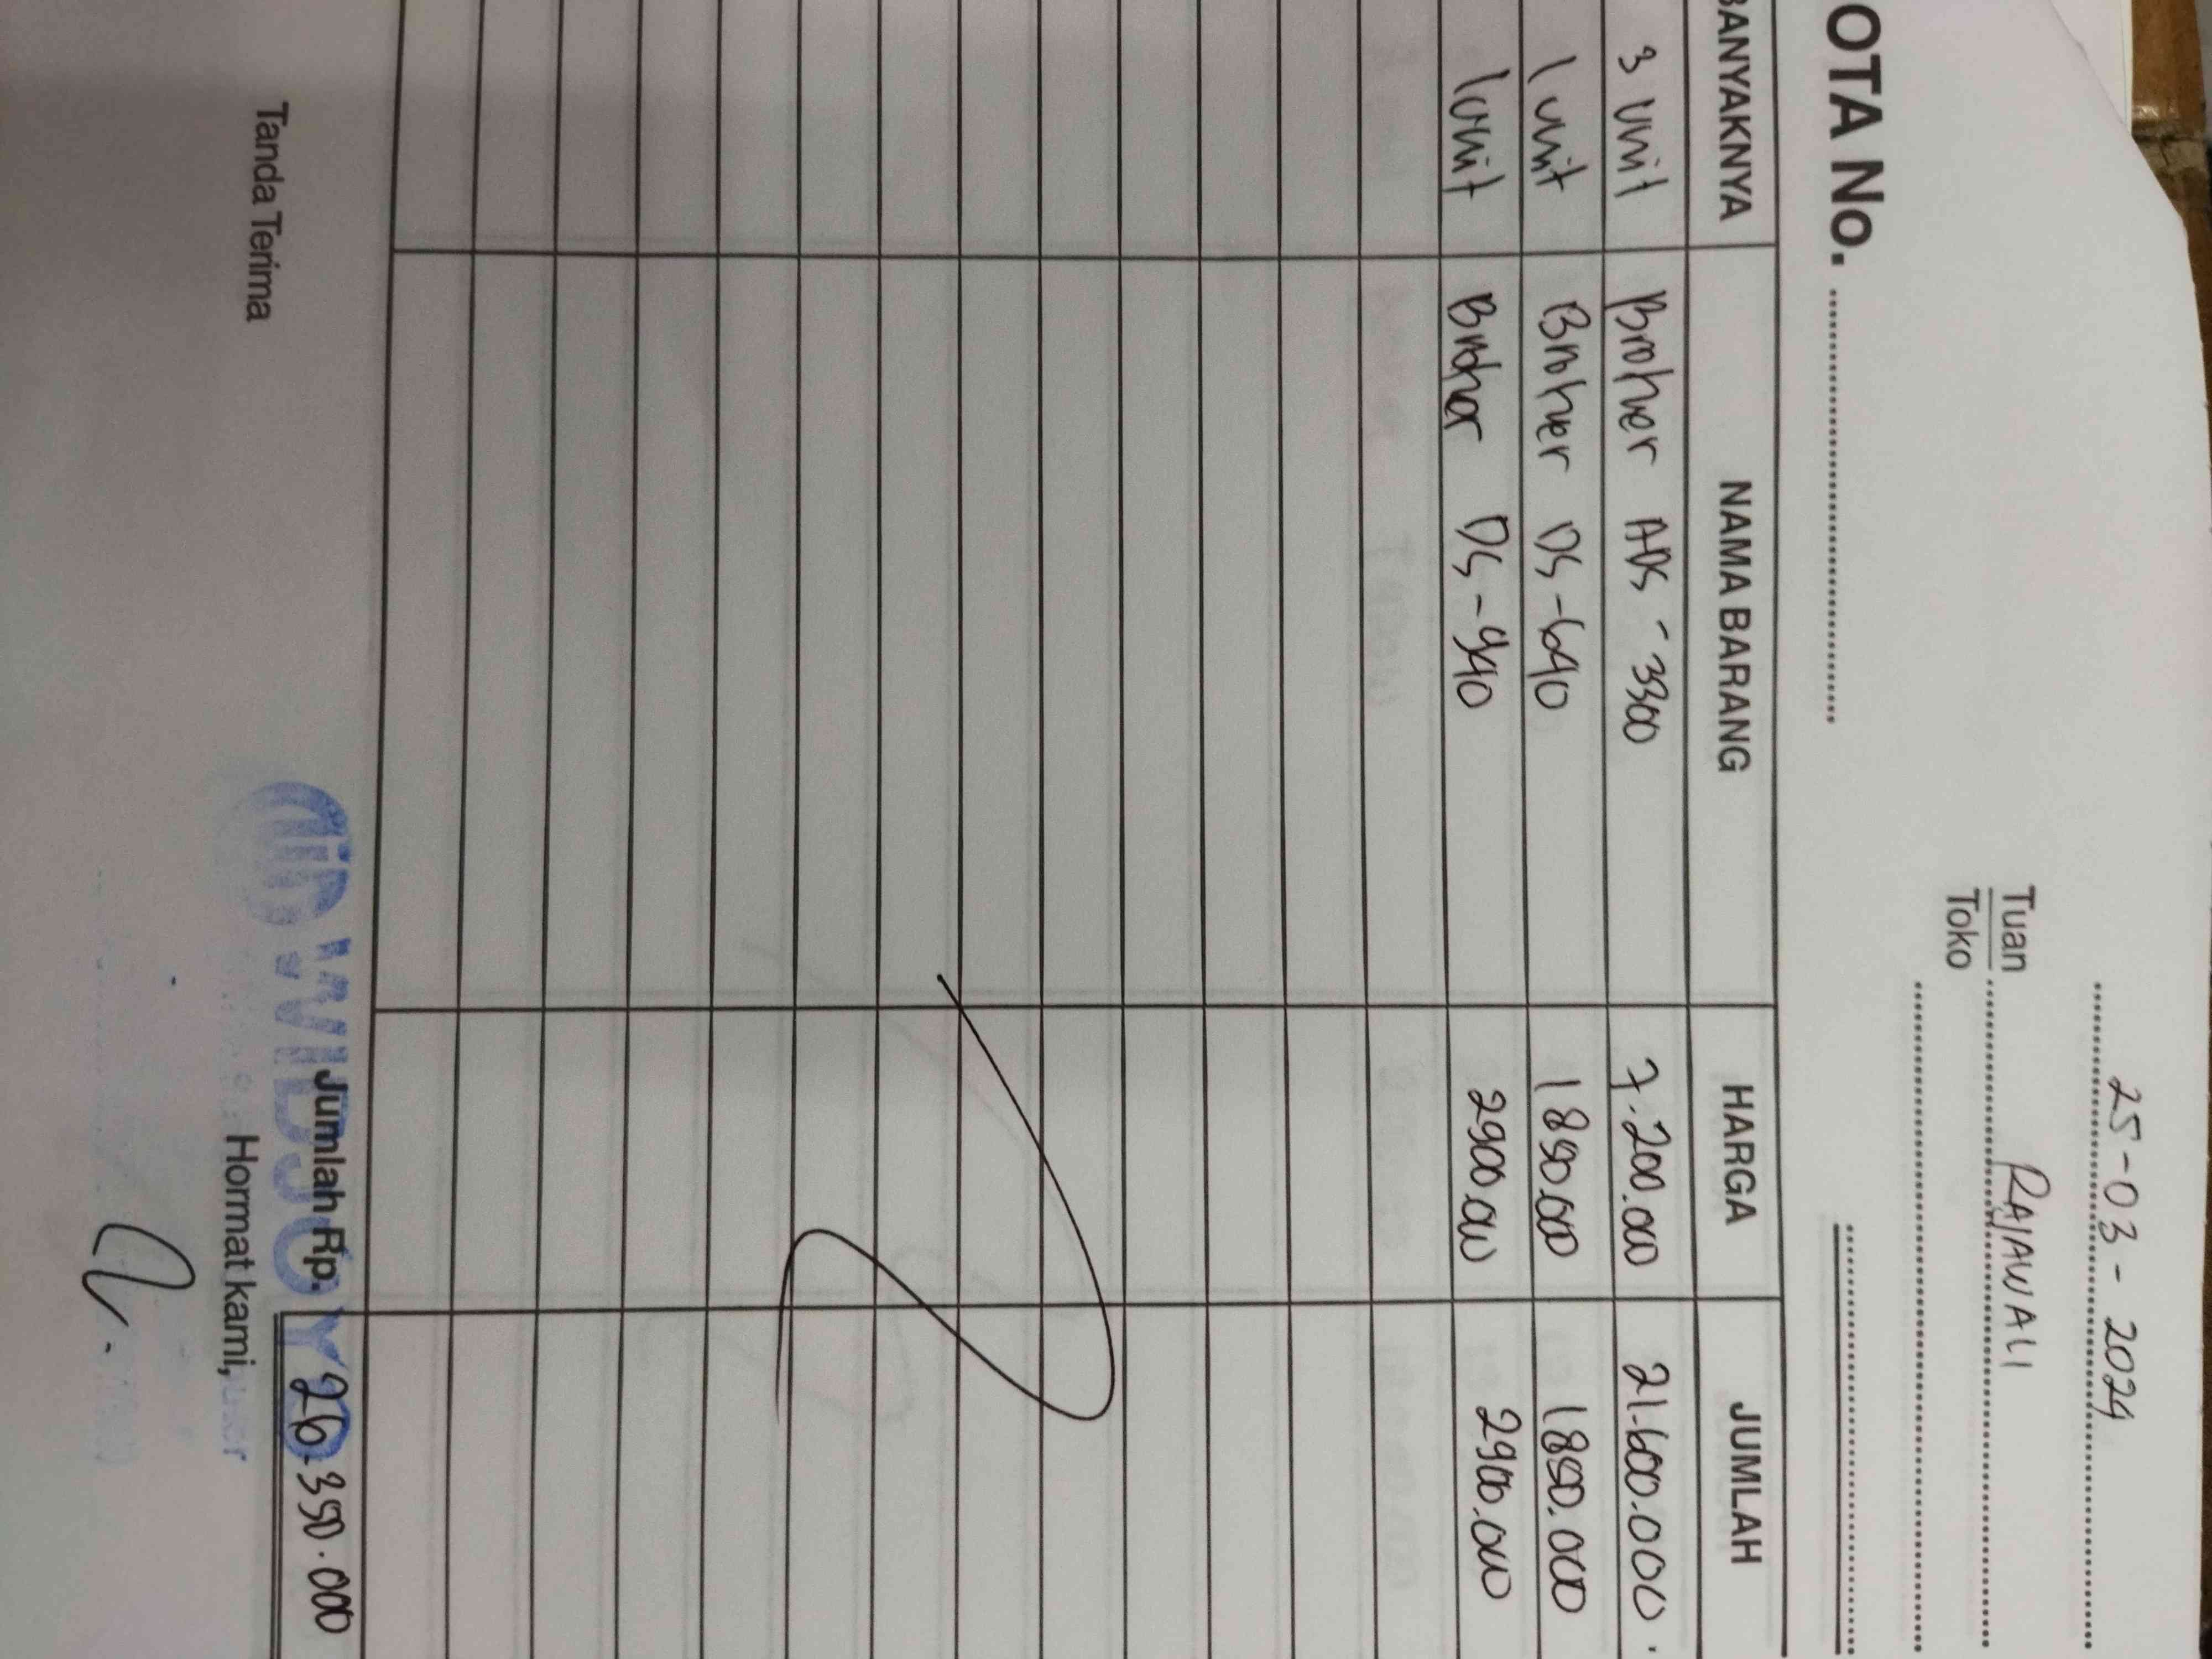 25-03-2024
Tuan RAJAWALI
Toko
OTA No.
BANYAKNYA NAMA BARANG HARGA JUMLAH
3 unit Brother ADS-3300 7.200.000 21.600.000
1 unit Brother DS-640 1850.000 1850.000
1 unit Brother DS-940 2900.000 2900.000
Jumlah Rp. 26.350.000
Tanda Terima Hormat kami,